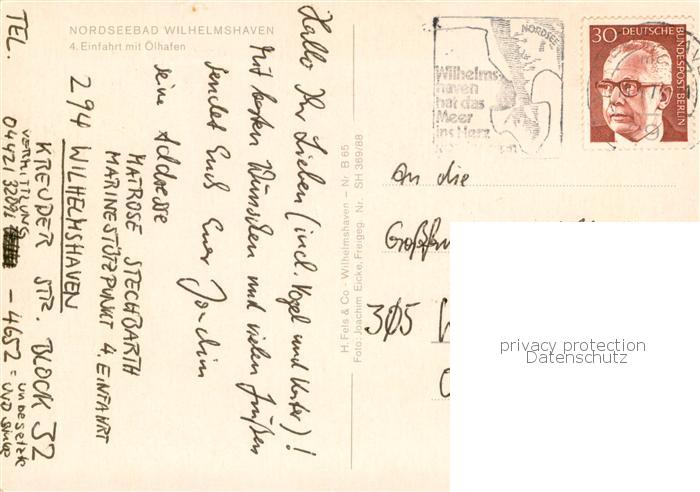 NORDSEEBAD WILHELMSHAVEN
4. Einfahrt mit Ölhafen
Hallo Ihr Lieben (incl. Vogel und Kater)!
Mit besten Wünschen und vielen Grüßen
sendet Euch Euer Joachim
seine Addresse
MATROSE STECHBARTH
MARINESTÜTZPUNKT 4. EINFAHRT
294 WILHELMSHAVEN
KREUDER STR. BLOCK 32
VERMITTLUNG
TEL. 04421 32091 – 4652 =
H. Fels & Co - Wilhelmshaven – Nr B 65
Foto: Joachim Eicke, Freigeg. Nr. SH 369/88
NORDSEE
Wilhelms-
haven
hat das
Meer
ins Herz
30 DEUTSCHE BUNDESPOST BERLIN
An die
305
privacy protection
Datenschutz